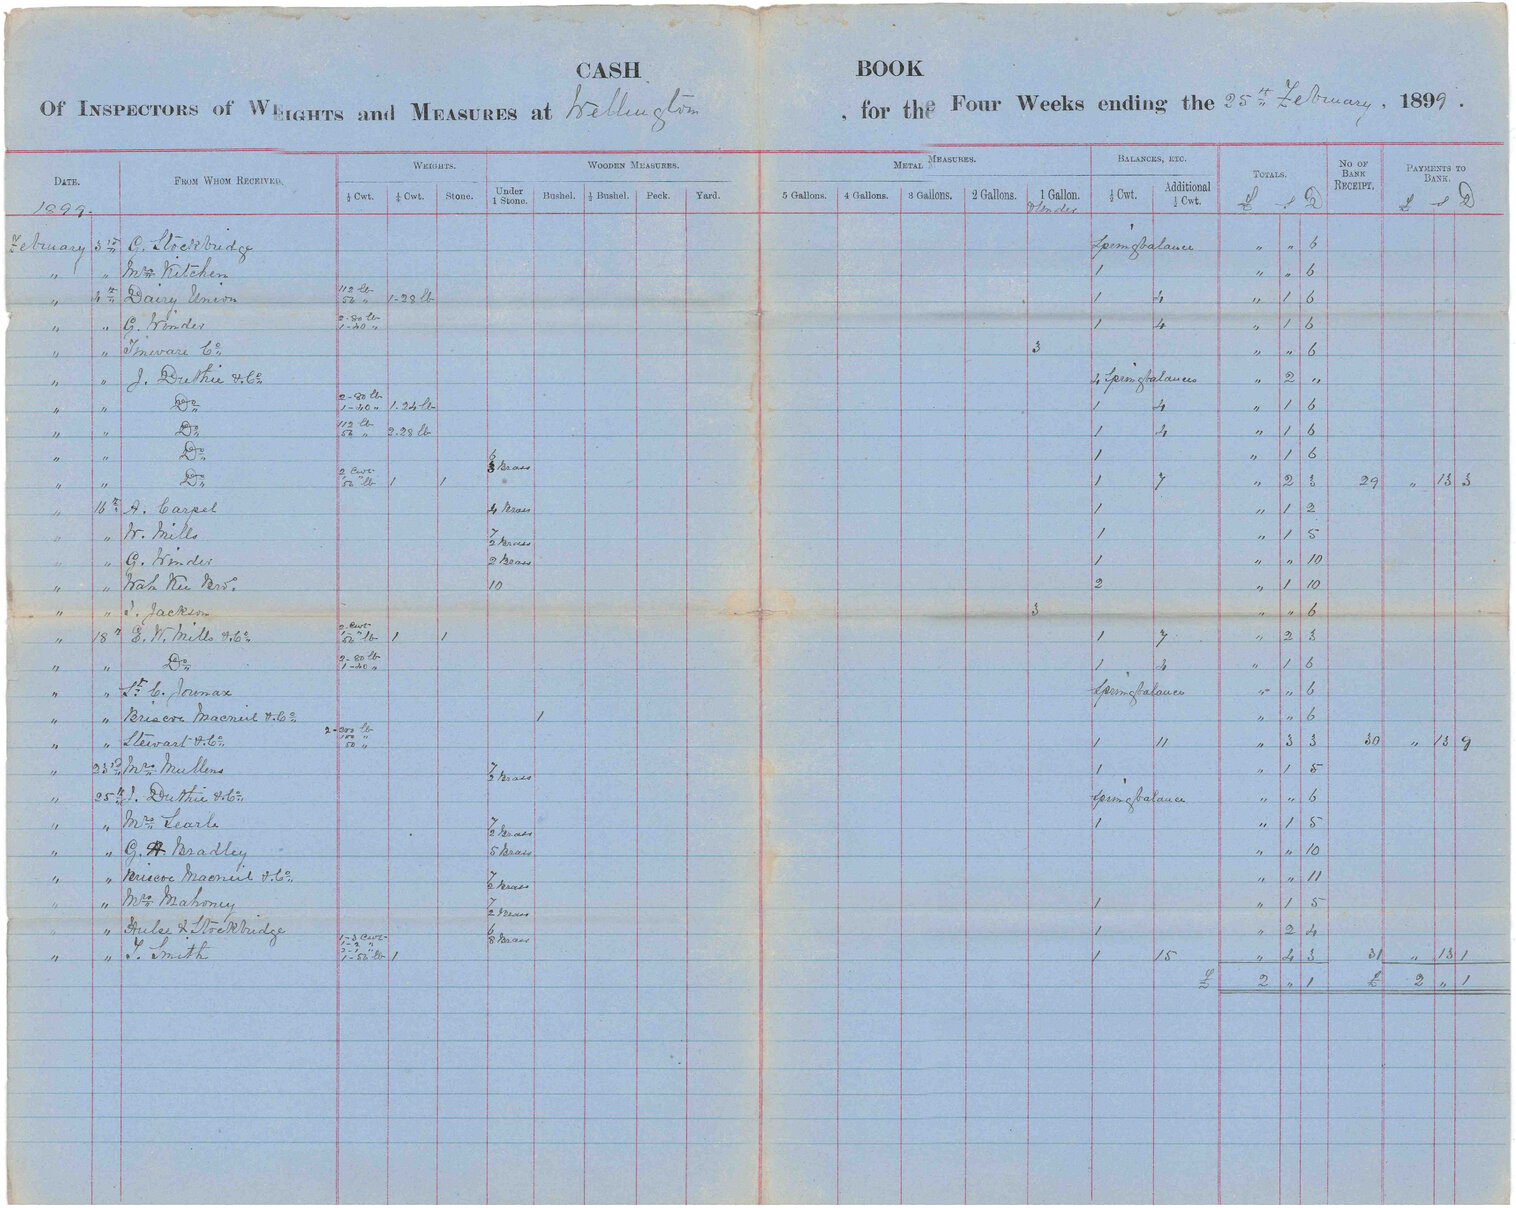 CASH BOOK
Of Inspectors of Weights and Measures at Wellington, for the Four Weeks ending the 25th February, 1899.
Date. From Whom Received. Weights. Wooden Measures. Metal Measures. Balances, etc. Totals. No of Bank Receipt. Payments to Bank.
½ Cwt. ¼ Cwt. Stone. Under 1 Stone. Bushel. ½ Bushel. Peck. Yard. 5 Gallons. 4 Gallons. 3 Gallons. 2 Gallons. 1 Gallon. & Under ½ Cwt. Additional ½ Cwt. £ s D £ s D
1899.
February 3rd G. Stockbridge Springbalance " " 6
" " Mrs Kitchen 1 " " 6
" 4th Dairy Union 112 lb 56 " 1-28 lb 1 4 " 1 6
" " G. Winder 2-80 lb 1-40 " 1 4 " 1 6
" " Tinware Co 3 " " 6
" " J. Duthie & Co 4 Springbalances " 2 "
" " Do 2-80 lb 1-40 " 1-24 lb 1 4 " 1 6
" " Do 112 lb 56 " 2-28 lb 1 4 " 1 6
" " Do 6 3 Brass 1 " 1 6
" " Do 2 Cwt 56 lb 1 1 1 7 " 2 3 29 " 13 3
" 16th A. Carpel 4 Brass 1 " 1 2
" " W. Mills 7 2 Brass 1 " 1 5
" " G. Winder 2 Brass 1 " " 10
" " Wah Kee Bro. 10 2 " 1 10
" " J. Jackson 3 " " 6
" 18th E. W. Mills & Co 2 Cwt 56 lb 1 1 1 7 " 2 3
" " Do 2-80 lb 1-40 " 1 4 " 1 6
" " St. C. Jounax Springbalance " " 6
" " Briscoe Macneil & Co 1 " " 6
" " Stewart & Co 2-200 lb 100 " 50 " 1 11 " 3 3 30 " 13 9
" 23rd Mrs Mullens 7 2 Brass 1 " 1 5
" 25th J. Duthie & Co Springbalance " " 6
" " Mrs Searle 7 2 Brass 1 " 1 5
" " G. H. Bradley 5 Brass " " 10
" " Briscoe Macneil & Co 7 2 Brass " " 11
" " Mrs Mahoney 7 2 Brass 1 " 1 5
" " Hulse & Stockbridge 6 8 Brass 1 " 2 4
" " T. Smith 1-3 Cwt 1-2 " 2-1 " 1-56 lb 1 1 15 " 4 3 31 " 13 1
£ 2 " 1 £ 2 " 1